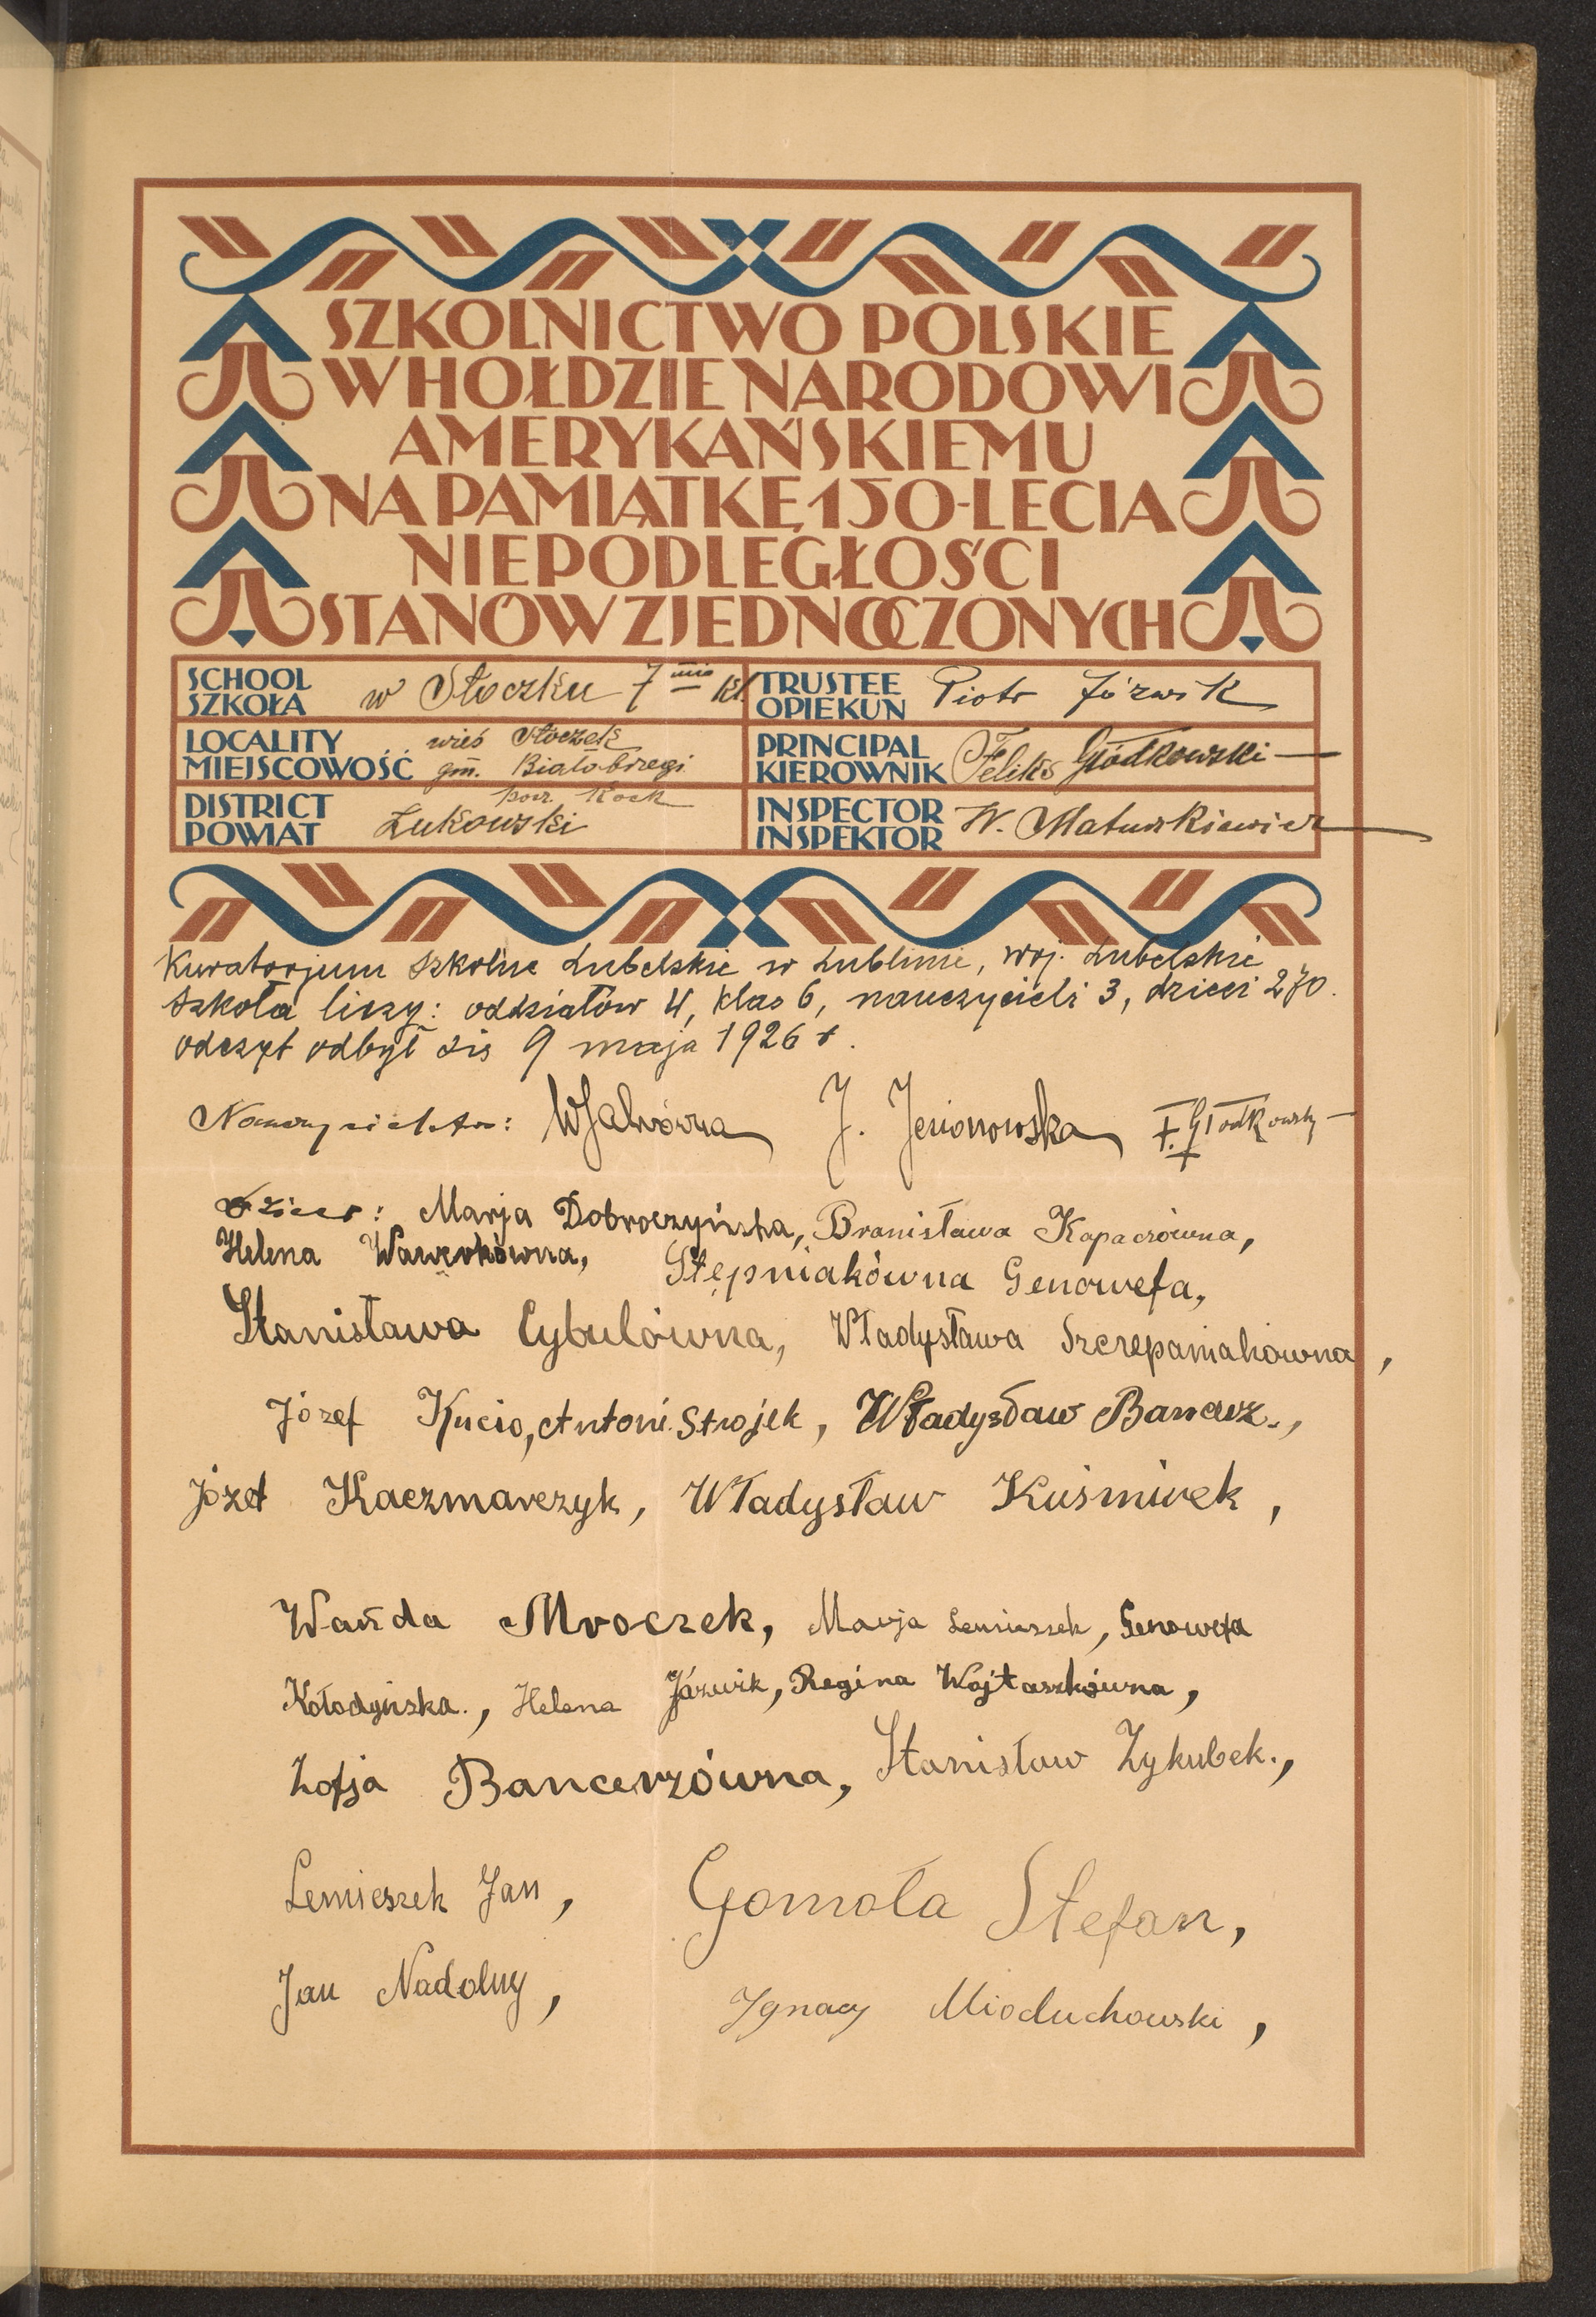 SZKOLNICTWO POLSKIE
W HOŁDZIE NARODOWI
AMERYKAŃSKIEMU
NA PAMIĄTKĘ 150-LECIA
NIEPODLEGŁOŚCI
STANÓW ZJEDNOCZONYCH
SCHOOL
SZKOŁA w Stoczku 7 mio kl.
TRUSTEE
OPIEKUN Piotr Józwik
LOCALITY wieś Stoczek
MIEJSCOWOŚĆ gm. Białobrzegi
PRINCIPAL
KIEROWNIK Feliks Głódkowski
pocz. Kock
DISTRICT
POWIAT Łukowski
INSPECTOR
INSPEKTOR W. Matuszkiewicz
Kuratorjum szkolne Lubelskie w Lublinie, woj. Lubelskie
Szkoła liczy: oddziałów 4, klas 6, nauczycieli 3, dzieci 270.
odczyt odbył się 9 maja 1926 r.
Nauczycielstwo: J. Jesionowska F. Głodkowski
Dzieci: Marja Dobroczyńska, Bronisława Kapaczówna,
Helena Wawerkówna, Stępniakówna Genowefa,
Stanisława Cybulówna, Władysława Szczepaniakówna,
Józef Kucio, Antoni Strojek, Władysław Bancerz.,
Józef Kaczmarczyk, Władysław Kuśmirek,
Wanda Mroczek, Marja Lemieszek, Genowefa
Kołodyńska., Helena Józwik, Regina Wojtaszkówna,
Zofja Bancerzówna, Stanisław Zykubek.,
Lemieszek Jan, Gomoła Stefan,
Jan Nadolny, Ignacy Mioduchowski,